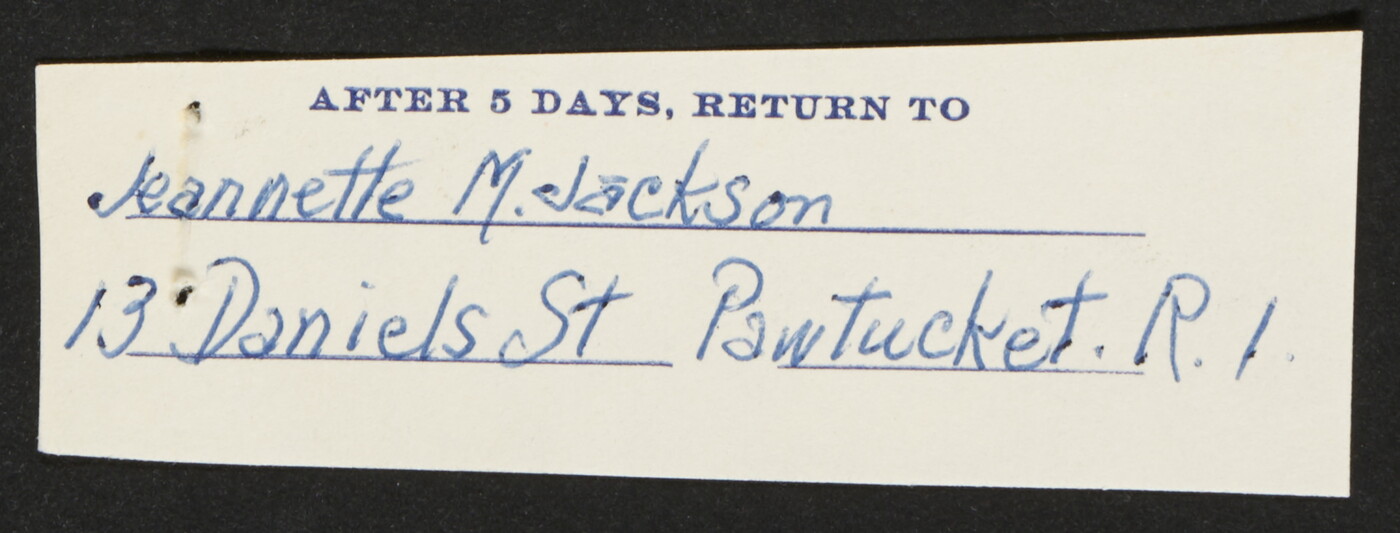 AFTER 5 DAYS, RETURN TO
Jeannette M. Jackson
13 Daniels St Pawtucket. R. I.